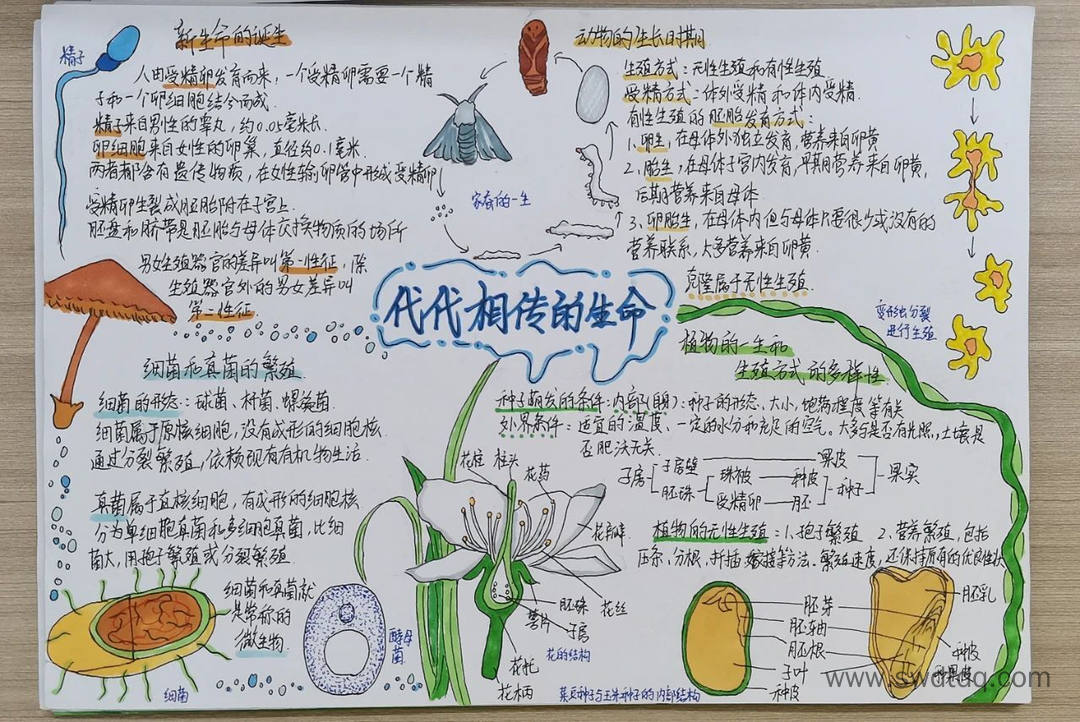 代代相传的生命
新生命的诞生
精子
人由受精卵发育而来，一个受精卵需要一个精
子和一个卵细胞结合而成.
精子来自男性的睾丸，约0.05毫米长.
卵细胞来自女性的卵巢，直径约0.1毫米.
两者都含有遗传物质，在女性输卵管中形成受精卵
受精卵分裂成胚胎附在子宫上.
胚盘和脐带是胚胎与母体交换物质的场所
男女生殖器官的差异叫第一性征，除
生殖器官外的男女差异叫
第二性征
家蚕的一生
动物的生长时期
生殖方式：无性生殖和有性生殖
受精方式：体外受精和体内受精.
有性生殖的胚胎发育方式：
1.卵生，在母体外独立发育，营养来自卵黄
2.胎生，在母体子宫内发育，早期营养来自卵黄，
后期营养来自母体
3、卵胎生，在母体内但与母体只要很少或没有的
营养联系，大多营养来自卵黄.
克隆属于无性生殖.
变形虫分裂
进行生殖
细菌和真菌的繁殖
细菌的形态：球菌、杆菌、螺旋菌.
细菌属于原核细胞，没有成形的细胞核
通过分裂繁殖，依赖现有有机物生活.
真菌属于真核细胞，有成形的细胞核
分为单细胞真菌和多细胞真菌，比细
菌大，用孢子繁殖或分裂繁殖
细菌和真菌就
是常称的
微生物.
细菌
酵母
菌
植物的一生和
生殖方式的多样性
种子萌发的条件：内部(自身)：种子的形态、大小、饱满程度等有关
外界条件：适宜的温度、一定的水分和充足的空气。大多与是否有光照，土壤是
否肥沃无关.
子房
子房壁
果皮
胚珠
珠被
种皮
受精卵
胚
种子
果实
植物的无性生殖：1.孢子繁殖 2.营养繁殖，包括
压条、分根、扦插、嫁接等方法。繁殖速度，还保持原有的优良性状
花柱
柱头
花药
花瓣
花丝
胚珠
萼片
子房
花托
花柄
花的结构
胚芽
胚轴
胚根
子叶
种皮
胚乳
菜豆种子与玉米种子的内部结构